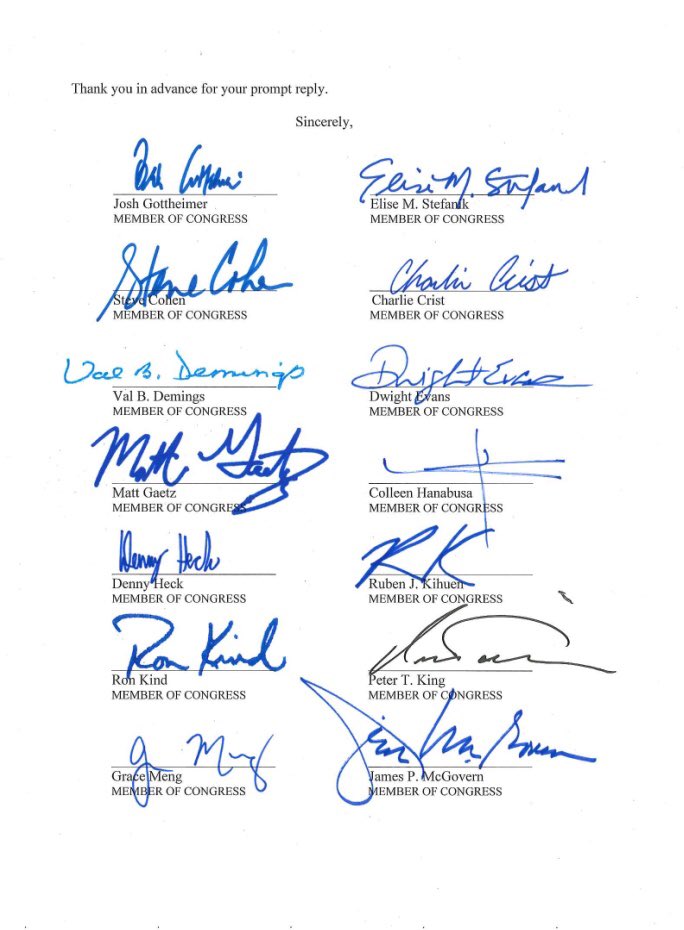 Thank you in advance for your prompt reply.
Sincerely,
Josh Gottheimer
MEMBER OF CONGRESS
Elise M. Stefanik
Elise M. Stefanik
MEMBER OF CONGRESS
Steve Cohen
Steve Cohen
MEMBER OF CONGRESS
Charlie Crist
Charlie Crist
MEMBER OF CONGRESS
Val B. Demings
Val B. Demings
MEMBER OF CONGRESS
Dwight Evans
Dwight Evans
MEMBER OF CONGRESS
Matt Gaetz
Matt Gaetz
MEMBER OF CONGRESS
Colleen Hanabusa
MEMBER OF CONGRESS
Denny Heck
Denny Heck
MEMBER OF CONGRESS
RK
Ruben J. Kihuen
MEMBER OF CONGRESS
Ron Kind
Ron Kind
MEMBER OF CONGRESS
Peter T. King
MEMBER OF CONGRESS
Grace Meng
MEMBER OF CONGRESS
Jim McGovern
James P. McGovern
MEMBER OF CONGRESS